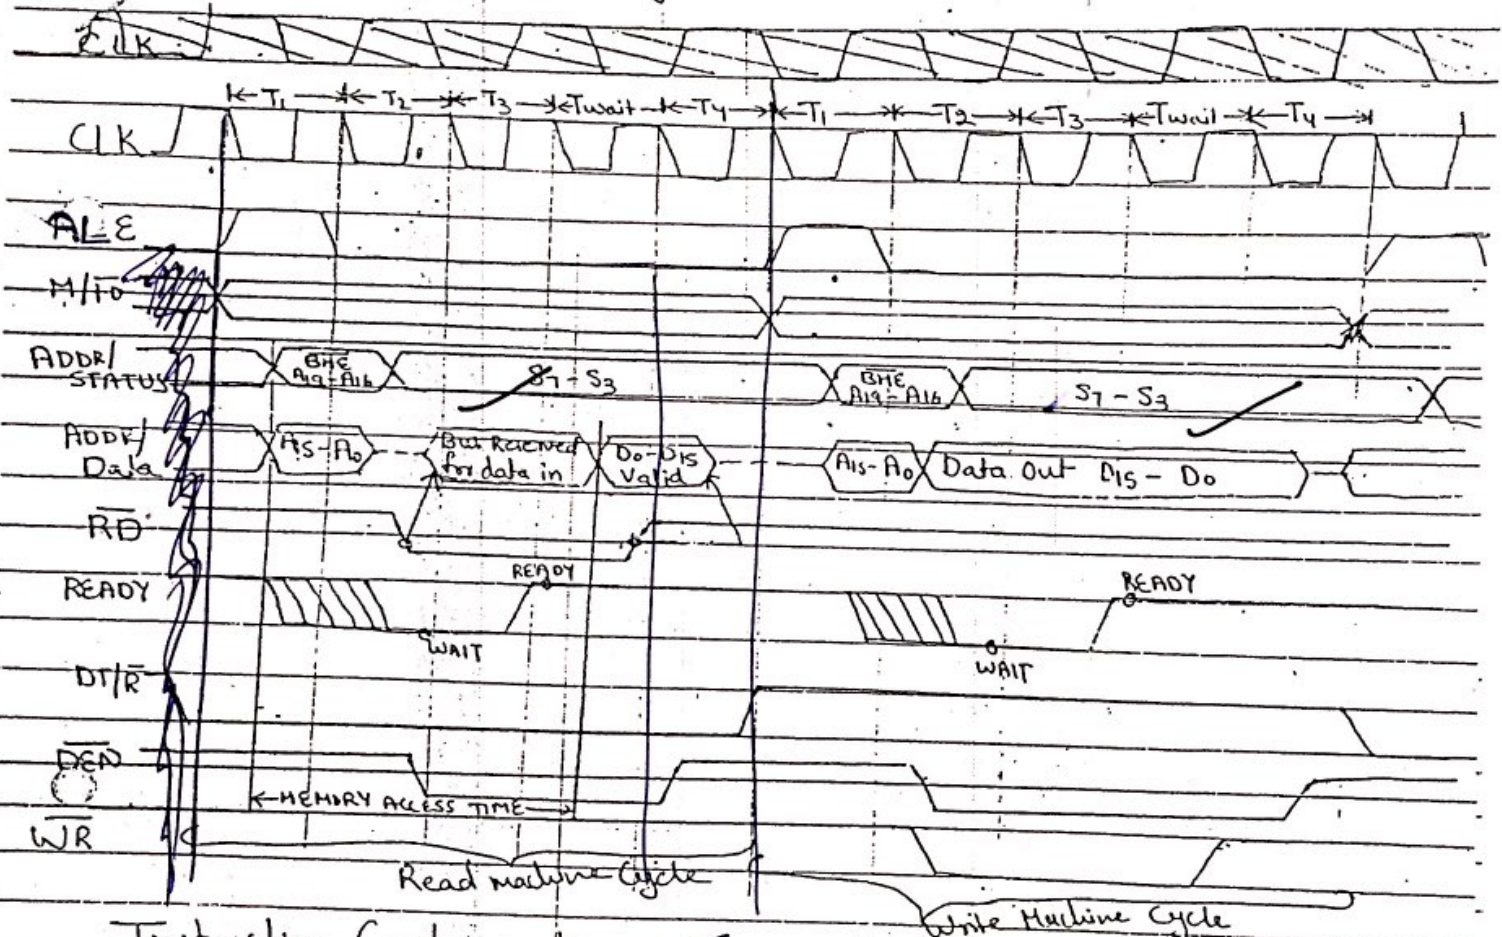 CLK
T1 T2 T3 Twait T4 T1 T2 T3 Twait T4
CLK
ALE
M/I̅O̅
ADDR/
STATUS
B̅H̅E̅
A19-A16
S7-S3
B̅H̅E̅
A19-A16
S7-S3
ADDR/
Data
A15-A0
Bus Reserved
for data in
D0-D15
Valid
A15-A0
Data Out D15-D0
R̅D̅
READY
READY
WAIT
READY
WAIT
DT/R̅
D̅E̅N̅
MEMORY ACCESS TIME
W̅R̅
Read machine Cycle
Write Machine Cycle